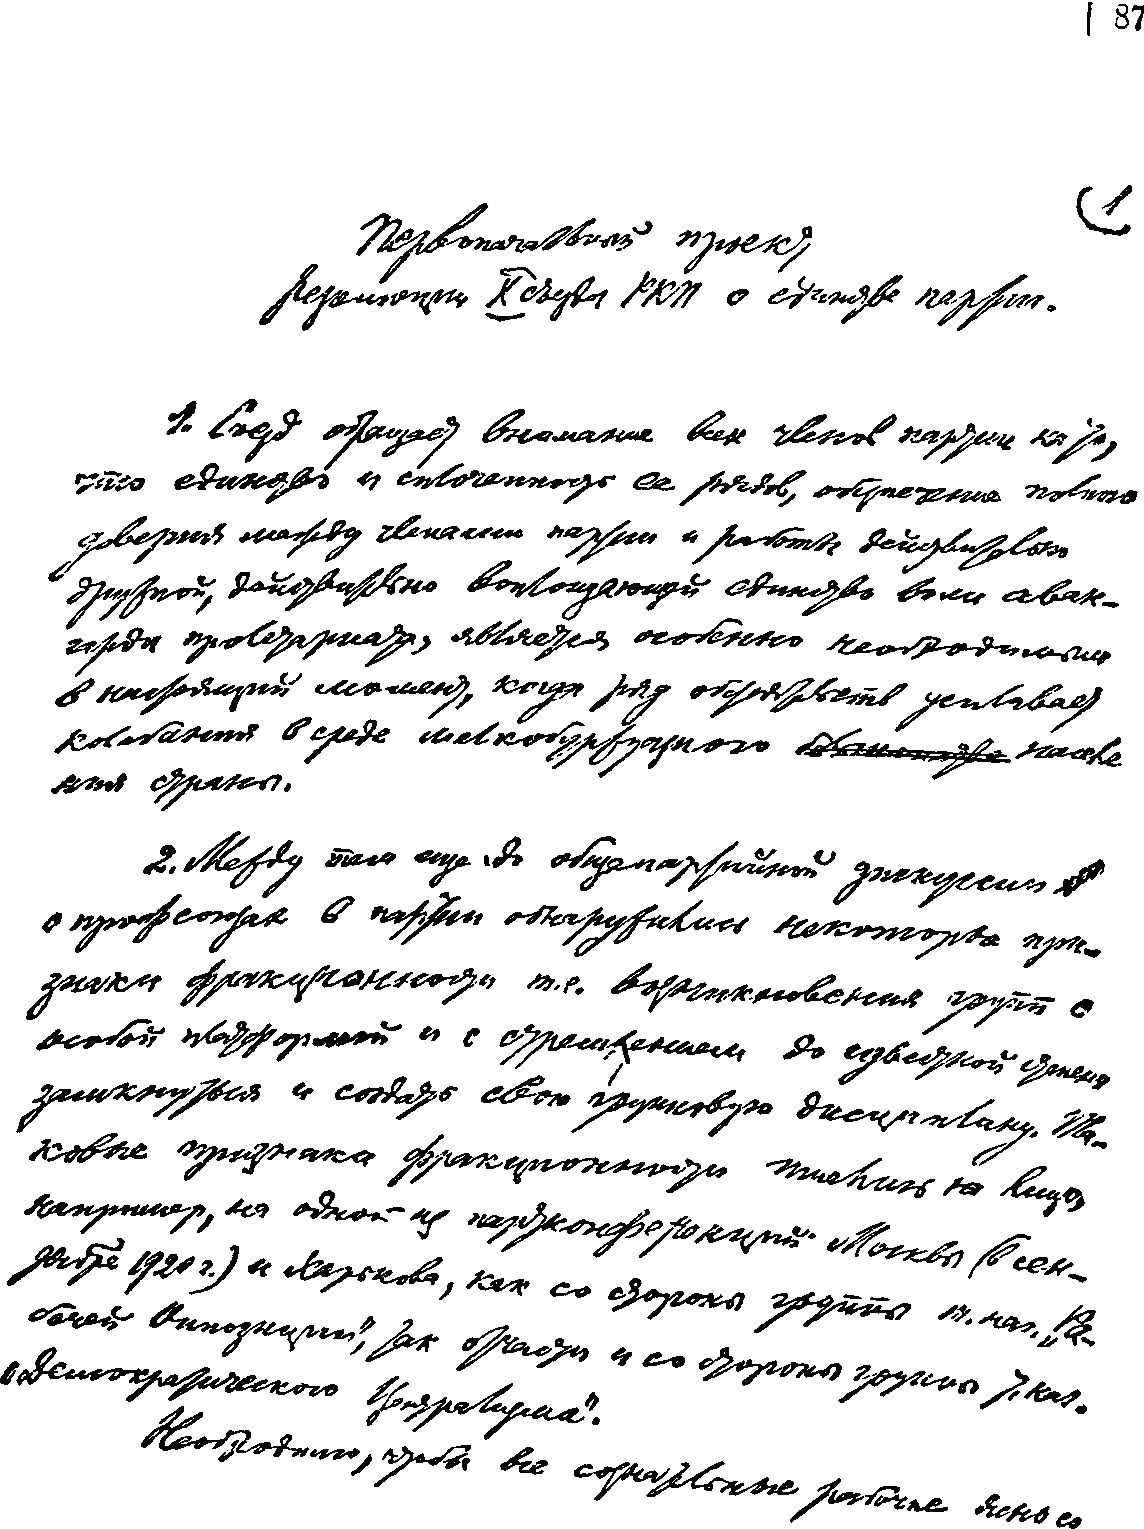 87
1
Первоначальный проект
резолюции X съезда РКП о единстве партии.
1. Съезд обращает внимание всех членов партии на то,
что единство и сплоченность ее рядов, обеспечение полного
доверия между членами партии и работы действительно
дружной, действительно воплощающей единство воли аван-
гарда пролетариата, является особенно необходимым
в настоящий момент, когда ряд обстоятельств усиливает
колебания в среде мелкобуржуазного населе
ния страны.
2. Между тем еще до общепартийной дискуссии
о профсоюзах в партии обнаружились некоторые при-
знаки фракционности т.е. возникновения групп с
особой платформой и с стремлением до известной степени
замкнуться и создать свою групповую дисциплину. Та-
ковые признаки фракционности имелись на лицо,
например, на одной из партконференций Москвы (в сен-
тябре 1920 г.) и Харькова, как со стороны группы т. наз. „Ра-
бочей Оппозиции", так отчасти и со стороны группы т. наз.
„Демократического Централизма".
Необходимо, чтобы все сознательные рабочие ясно со